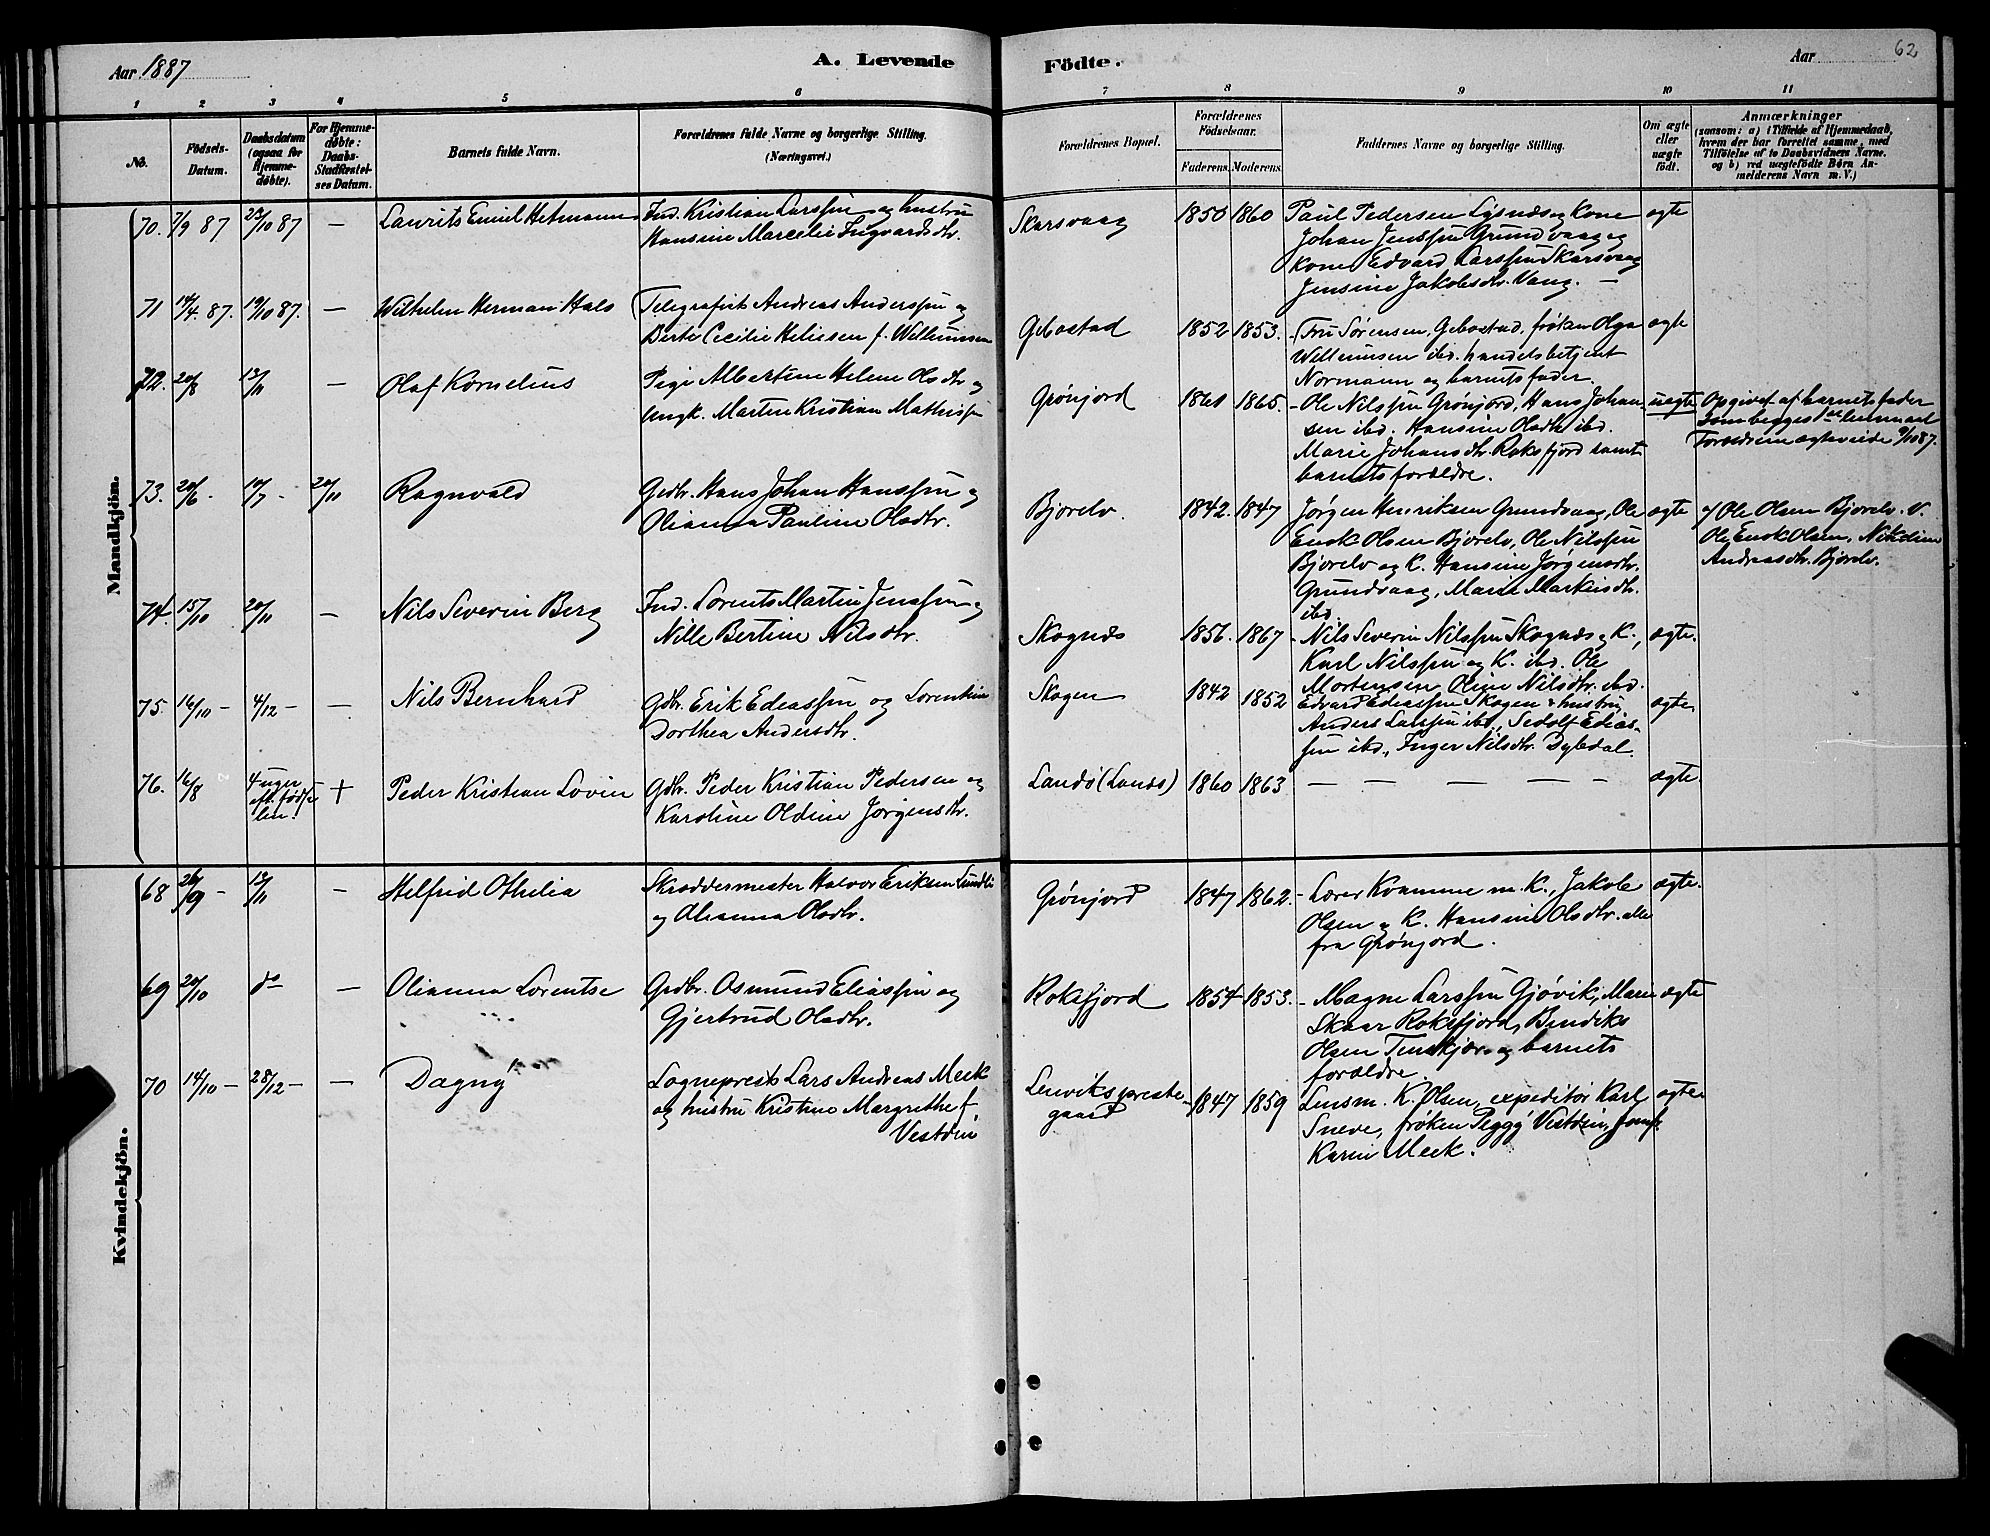 Aar 1887
A. Levende
Födte.
Aar
62
1 2 3 4 5 6 7 8 9 10 11
No.
Födsels-
Datum.
Daabsdatum
(ogsaa for
Hjemme-
døbte).
For Hjemme-
døbte:
Daabs-
Stadfæstel-
ses Datum.
Barnets fulde Navn.
Forældrenes fulde Navne og borgerlige Stilling.
(Næringsvei.)
Forældrenes Bopæl.
Forældrenes
Födselsaar.
Faderens. Moderens.
Faddernes Navne og borgerlige Stilling.
Om ægte
eller
uægte
födt.
Anmærkninger
(saasom: a) i Tilfælde af Hjemmedaab,
hvem der har forrettet samme, med
Tilföielse af to Daabsvidners Navne,
og b) ved uægtefödte Börn An-
melderens Navn m. V.)
Mandkjön.
70. 7/9 87 23/10 87 — Laurits Emil Hetmann Ind. Kristian Larssen og hustru
Hansine Marcelie Ingvardsdtr.
Skarsvaag 1850 1860 Paul Pedersen Lysnæs og Kone
Johan Jenssen Grundvaag og
Kone Edvard Larssen Skarsvaag
Jensine Jakobsdtr. Vang. —
ægte
71 14/4. 87. 19/10 87. — Wilhelm Herman Hals Telegrafist Andreas Anderssen og
Berte Cecilie Heliesen f. Wellumsen
Gibostad 1852 1853. - Fru Sørensen, Gibostad, frøken Olga
Wellumsen ibd. handelsbetjent
Normann og barnets fader.
ægte
72. 20/8 13/11 — Olaf Kornelius Pige Albertine Helene Olsdtr og
Ungk. Martin Kristian Mathissen
Grønjord 1861 1865. - Ole Nilssen Grønjord, Hans Johan-
sen ibd. Hansine Olsdtr ibd.
Marie Johansdtr. Roksfjord samt
barnets forældre.
uægte Opgivet af barnets fader
som begges 1ste leiermaal
Forældrene ægteviede 9/10 87.
73. 20/6 - 10/7 - 20/11 Ragnvald Gdbr. Hans Johan Hanssen og
Olianna Pauline Olsdtr.
Bjorelv. 1842. 1847 Jørgen Henriksen Grundvaag, Ole
Enok Olsen Bjorelv, Ole Nilssen
Bjorelv og K. Hansine Jørgensdtr.
Grundvaag, Maria Markusdtr.
ibd.
ægte af Ole Olsen Bjorelv. V.
Ole Enok Olsen, Nikoline
Andreasdtr. Bjorelv.
74. 15/10 20/11 — Nils Severin Berg Ind. Lorents Martin Jenssen og
Nille Bertine Nilsdtr.
Skognæs 1856. 1867 - Nils Severin Nilssen Skognæs og K.,
Karl Nilssen og K. ibd. Ole
Mortensen, Oline Nilsdtr. ibd.
ægte.
75. 16/10 - 4/12 - — Nils Bernhard Gdbr. Erik Ediassen og Lorentine
Dorthea Andersdtr.
Skogen 1842 1852 Edvard Ediassen Skogen & hustru
Anders Larssen ibd., Sedolf Edias-
sen ibd., Inger Nilsdtr. Dybdal
ægte
76. 16/8 4 uger
eft. fødse-
len. + Peder Kristian Lovin Gdbr. Peder Kristian Pedersen og
Karoline Oldine Jørgensdtr.
Landø (Lands) 1860 1863 — — — — —
ægte
Kvindekjön.
68 26/9 - 13/11 — Helfrid Othilia Skræddermester Halvor Eriksen Lundli
og Olianna Olsdtr.
Grønjord 1847 1862. - Lærer Kvamme m. K., Jakob
Olsen og K. Hansine Olsdtr. alle
fra Grønjord.
ægte.
69 20/10 do — Olianna Lorentse Gdbr. Osmund Eliassen og
Gjertrud Olsdtr.
Roksfjord 1854 1853. - Magne Larssen Gjøvik, Marie
Skaar Roksfjord, Bendiks
Olsen Tenskjær og barnets
forældre.
ægte
70 14/10 - 28/12 - — Dagny Sogneprest Lars Andreas Meek
og hustru Kristine Margrethe f.
Vestdin
Lenviks preste-
gaard
1847 1859 Lensm. K. Olsen, expeditør Karl
Sneve, frøken Peggy Vestdin, jomf.
Karin Meek.
ægte